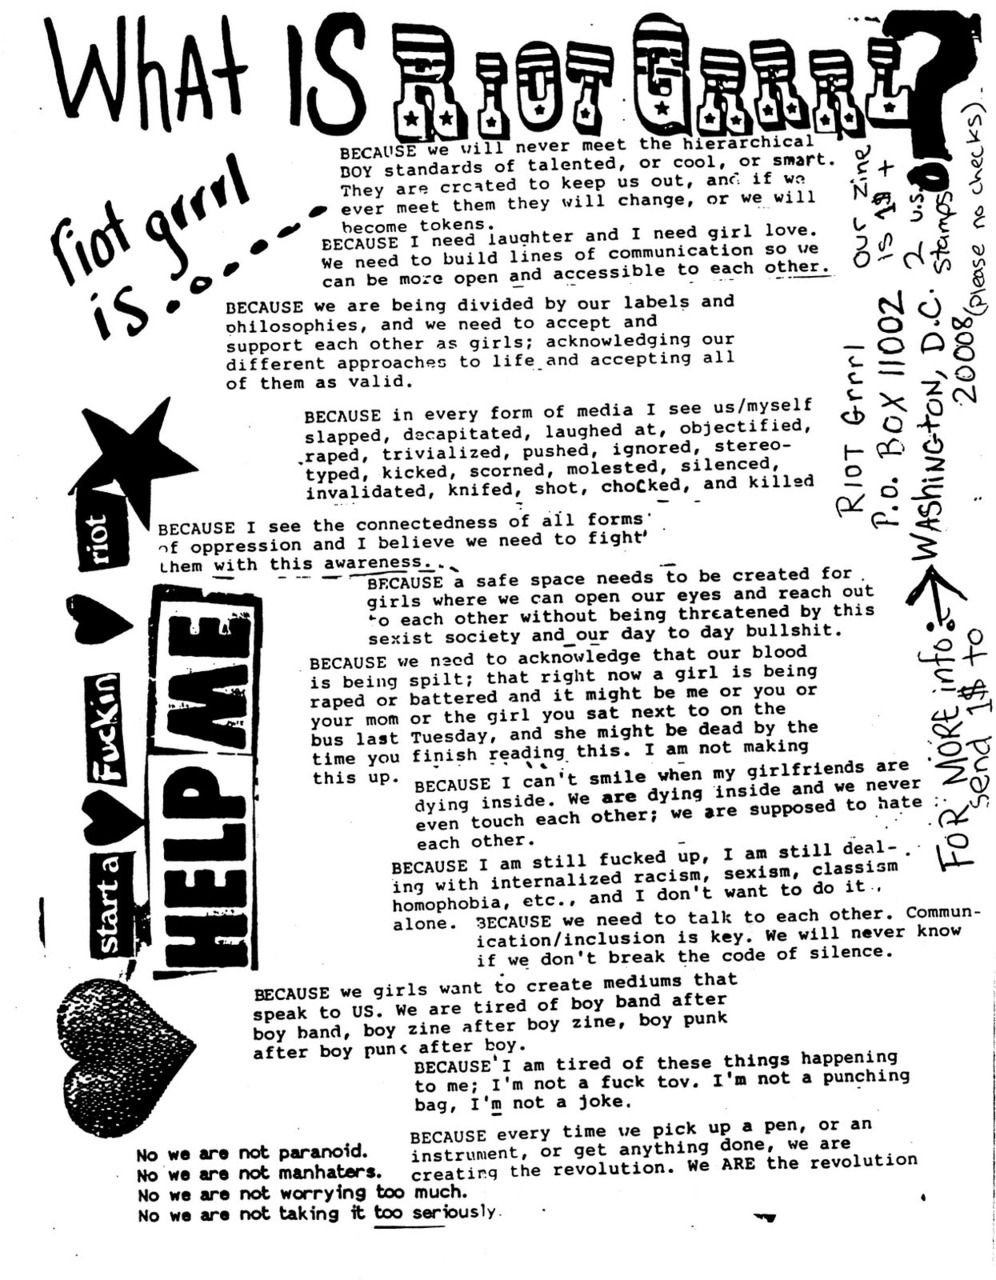 WHAT IS RIOT GRRRL?
riot grrrl
is.......
BECAUSE we will never meet the hierarchical
BOY standards of talented, or cool, or smart.
They are created to keep us out, and if we
ever meet them they will change, or we will
become tokens.
BECAUSE I need laughter and I need girl love.
We need to build lines of communication so we
can be more open and accessible to each other.
BECAUSE we are being divided by our labels and
philosophies, and we need to accept and
support each other as girls; acknowledging our
different approaches to life and accepting all
of them as valid.
BECAUSE in every form of media I see us/myself
slapped, decapitated, laughed at, objectified,
raped, trivialized, pushed, ignored, stereo-
typed, kicked, scorned, molested, silenced,
invalidated, knifed, shot, choCked, and killed
BECAUSE I see the connectedness of all forms
of oppression and I believe we need to fight
them with this awareness...
BECAUSE a safe space needs to be created for
girls where we can open our eyes and reach out
to each other without being threatened by this
sexist society and our day to day bullshit.
BECAUSE we need to acknowledge that our blood
is being spilt; that right now a girl is being
raped or battered and it might be me or you or
your mom or the girl you sat next to on the
bus last Tuesday, and she might be dead by the
time you finish reading this. I am not making
this up.
BECAUSE I can't smile when my girlfriends are
dying inside. We are dying inside and we never
even touch each other; we are supposed to hate
each other.
BECAUSE I am still fucked up, I am still deal-
ing with internalized racism, sexism, classism
homophobia, etc., and I don't want to do it
alone.
BECAUSE we need to talk to each other. Commun-
ication/inclusion is key. We will never know
if we don't break the code of silence.
BECAUSE we girls want to create mediums that
speak to US. We are tired of boy band after
boy band, boy zine after boy zine, boy punk
after boy punk after boy.
BECAUSE I am tired of these things happening
to me; I'm not a fuck toy. I'm not a punching
bag, I'm not a joke.
BECAUSE every time we pick up a pen, or an
instrument, or get anything done, we are
creating the revolution. We ARE the revolution
No we are not paranoid.
No we are not manhaters.
No we are not worrying too much.
No we are not taking it too seriously.
start a
Fuckin
riot
HELP ME
OUR Zine
is 1$ +
2 U.S.
stamps
(please no checks).
RIOT Grrrl
P.O. BOX 11002
WASHINGtON, D.C.
20008
FOR MORE info:
send 1$ to